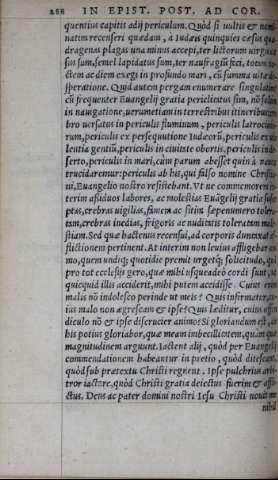 288 IN EPIST. POST. AD COR.
quentius capitis adij periculum. Quòd si uultis &
natim recenseri quædam, à Iudæis quinquies cæsus
dragenas plagas una minus accepi, ter lictorum uirgis
sus sum, semel lapidatus sum, ter naufragiũ feci, totum
ctem ac diem exegi in profundo mari, cũ summa uitæ
speratione. Quid autem pergam enumerare singulatim
cũ frequenter Euangelij gratia periclitatus sim, nõ solum
in nauigatione, uerumetiam in terrestribus itineribus
bro uersatus in periculis fluminum, periculis latrocinan
rum, periculis ex persequutione Iudæorũ, periculis ex
lentia gentiũ, periculis in ciuitate obortis, periculis in
serto, periculis in mari, cũm parum abesset quin à
trucidaremur: periculis ab his, qui falso nomine Christia
ni, Euangelio nostro resistebant. Vt ne commemorem
terim assiduos labores, ac molestias Euãgelij gratia
ptas, crebras uigilias, famem ac sitim sæpenumero tolera
tam, crebras inedias, frigoris ac nuditatis toleratam mole
stiam. Sed quæ hactenus recensui, ad corporis duntaxat
flictionem pertinent. At interim non leuius affligebar
mo, quem undiq; quotidie premit urgetq́; solicitudo,
pro tot ecclesijs gero, quæ mihi usqueadeò cordi sunt,
quicquid illis acciderit, mihi putem accidisse. Cuius enim
malis nõ indolesco perinde ut meis? Quis infirmatur,
ius malo non ægrescam & ipse? Quis læditur, cuius
diculo nõ & ipse discrucier animo? Si gloriandum est,
his potius gloriabor, quæ meam imbecillitatem, quàm quæ
magnitudinem arguunt. Iactent alij, quòd per Euangelij
commendationem habeantur in pretio, quòd ditescant,
quòd sub prætextu Christi regnent. Ipse pulchrius
tror iactare, quòd Christi gratia deiectus fuerim &
ctus. Deus ac pater domini nostri Iesu Christi nouit
nihil